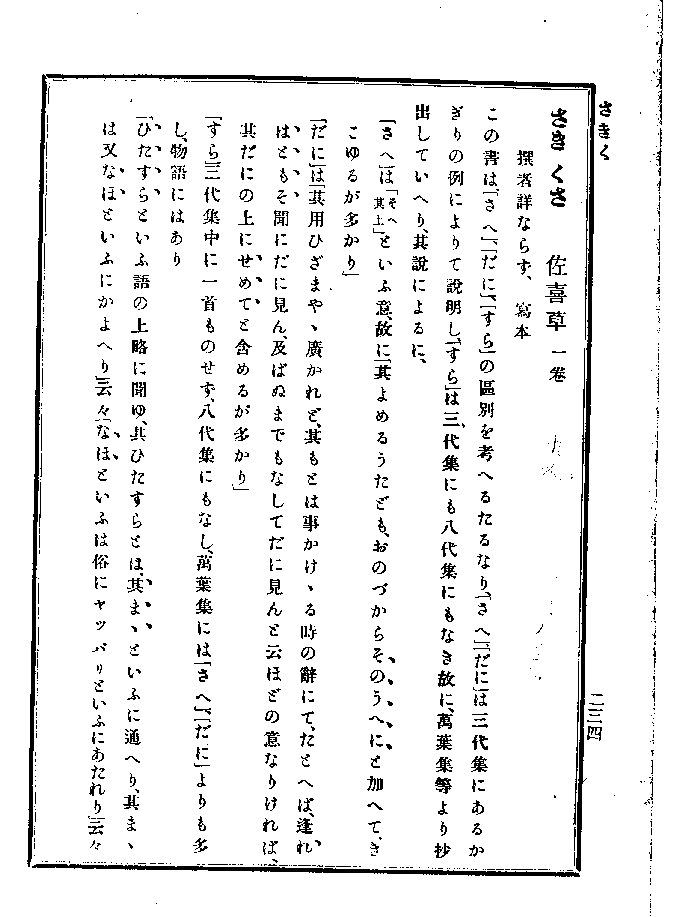 さきく
二三四
さきくさ 佐喜草 一卷
撰者詳ならず、 寫本
この書は「さへ」「だに」「すら」の區別を考へるたるなり、「さへ」「だに」は三代集にあるか
ぎりの例によりて說明し、「すら」は三代集にも八代集にもなき故に、萬葉集等より抄
出していへり、其說によるに、
「さへ」は「そへ其上」といふ意、故に「其よめるうたども、おのづからそのうへにと加へて、き
こゆるが多かり」
「だに」は「其用ひざまやゝ廣かれど、其もとは事かけゝる時の辭にて、たとへば、逢れ
はともそ聞にだに見ん、及ばぬまでもなしてだに見んと云ほどの意なりければ、
其だにの上にせめてと含めるが多かり」
「すら」三代集中に一首ものせず、八代集にもなし、萬葉集には「さへ」「だに」よりも多
し、物語にはあり
「ひたすらといふ語の上略に聞ゆ、其ひたすらとは、其まゝといふに通へり、其まゝ
は又なほといふにかよへり」云々「なほといふは俗にヤッパリといふにあたれり」云々